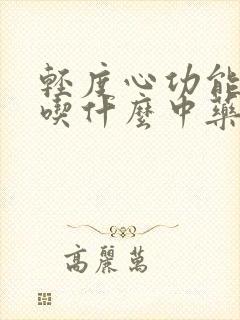 輕度心功能
喫什麼中藥
高麗萬